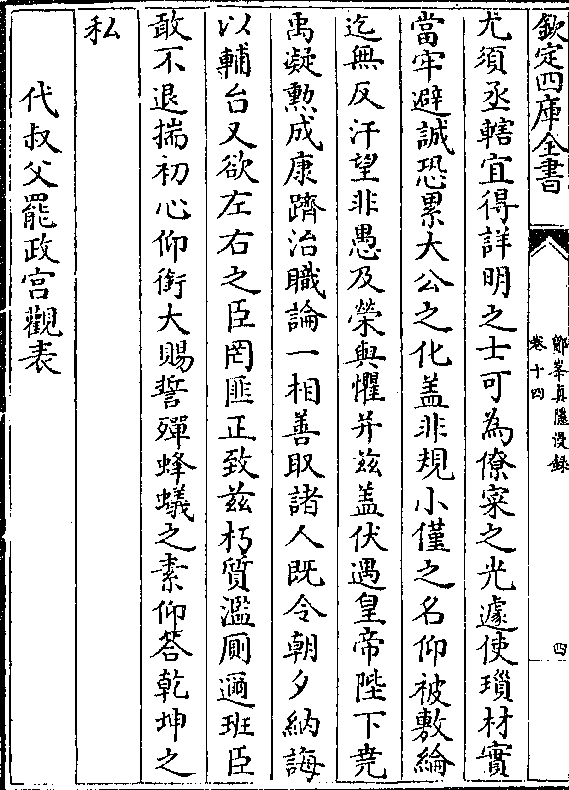 欽定四庫全書
鄮峯真隱漫録
卷十四
四
尤須丞轄宜得詳明之士可為僚寀之光遽使瑣材實
當牢避誠恐累大公之化盖非規小僅之名仰被敷綸
迄無反汗望非愚及榮與懼并兹盖伏遇皇帝陛下堯
禹凝勲成康躋治職論一相善取諸人既令朝夕納誨
以輔台又欲左右之臣罔匪正致兹朽質濫厠邇班臣
敢不退揣初心仰銜大賜誓殫蜂蟻之素仰答乾坤之
私
代叔父罷政宮觀表